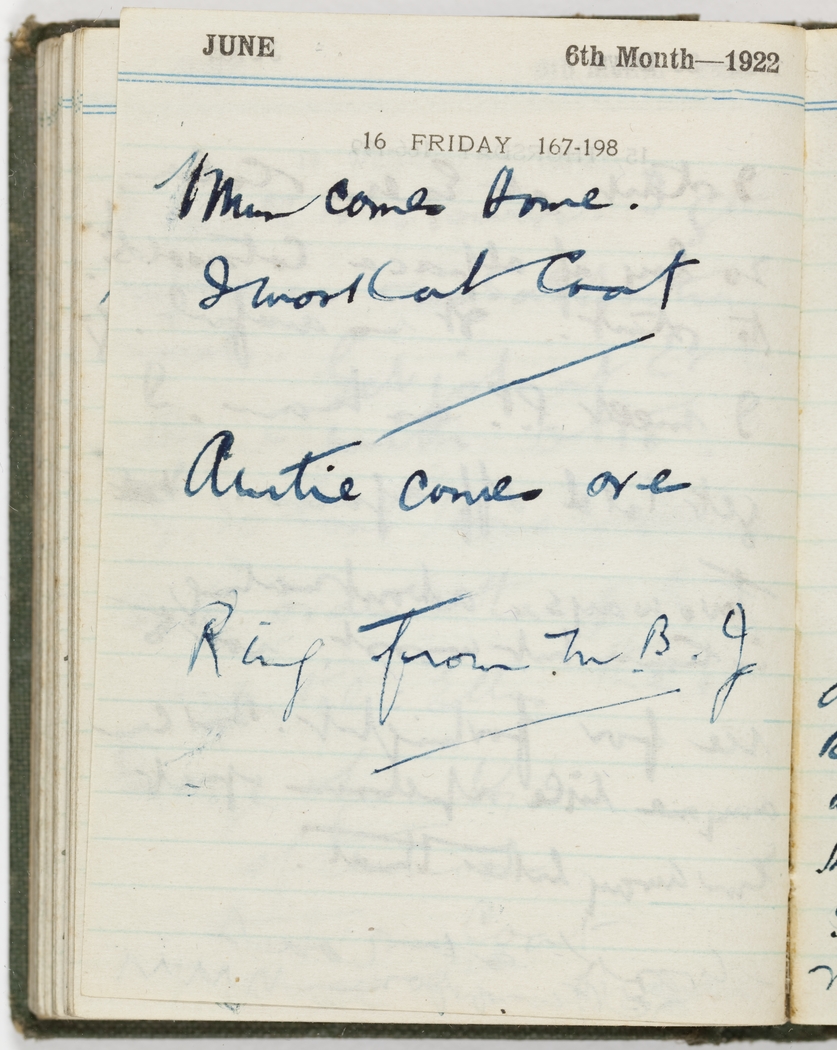 JUNE 6th Month—1922
16 FRIDAY 167-198
Mum comes home.
I work at Coat
Auntie comes over
Ring from M. B. J